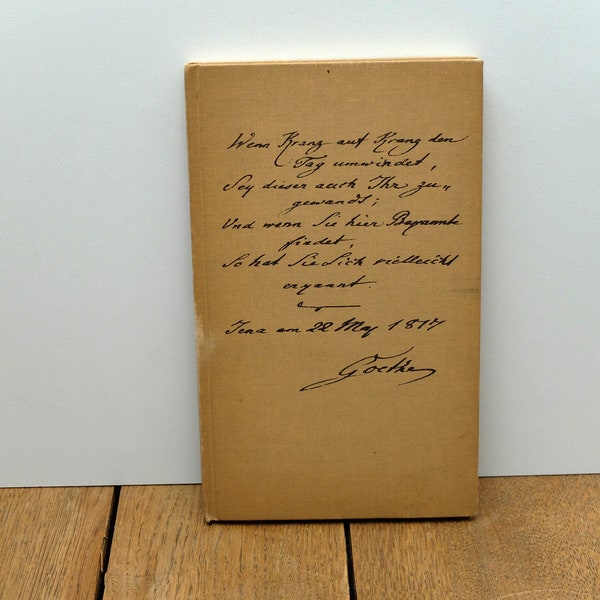 Wenn Kranz auf Kranz den
Tag umwindet,
Sey dieser auch Ihr zu„
gewandt;
Und wenn Sie hier Bekannte
findet,
So hat Sie Sich vielleicht
erkannt.
Jena am 22 May 1817
Goethe